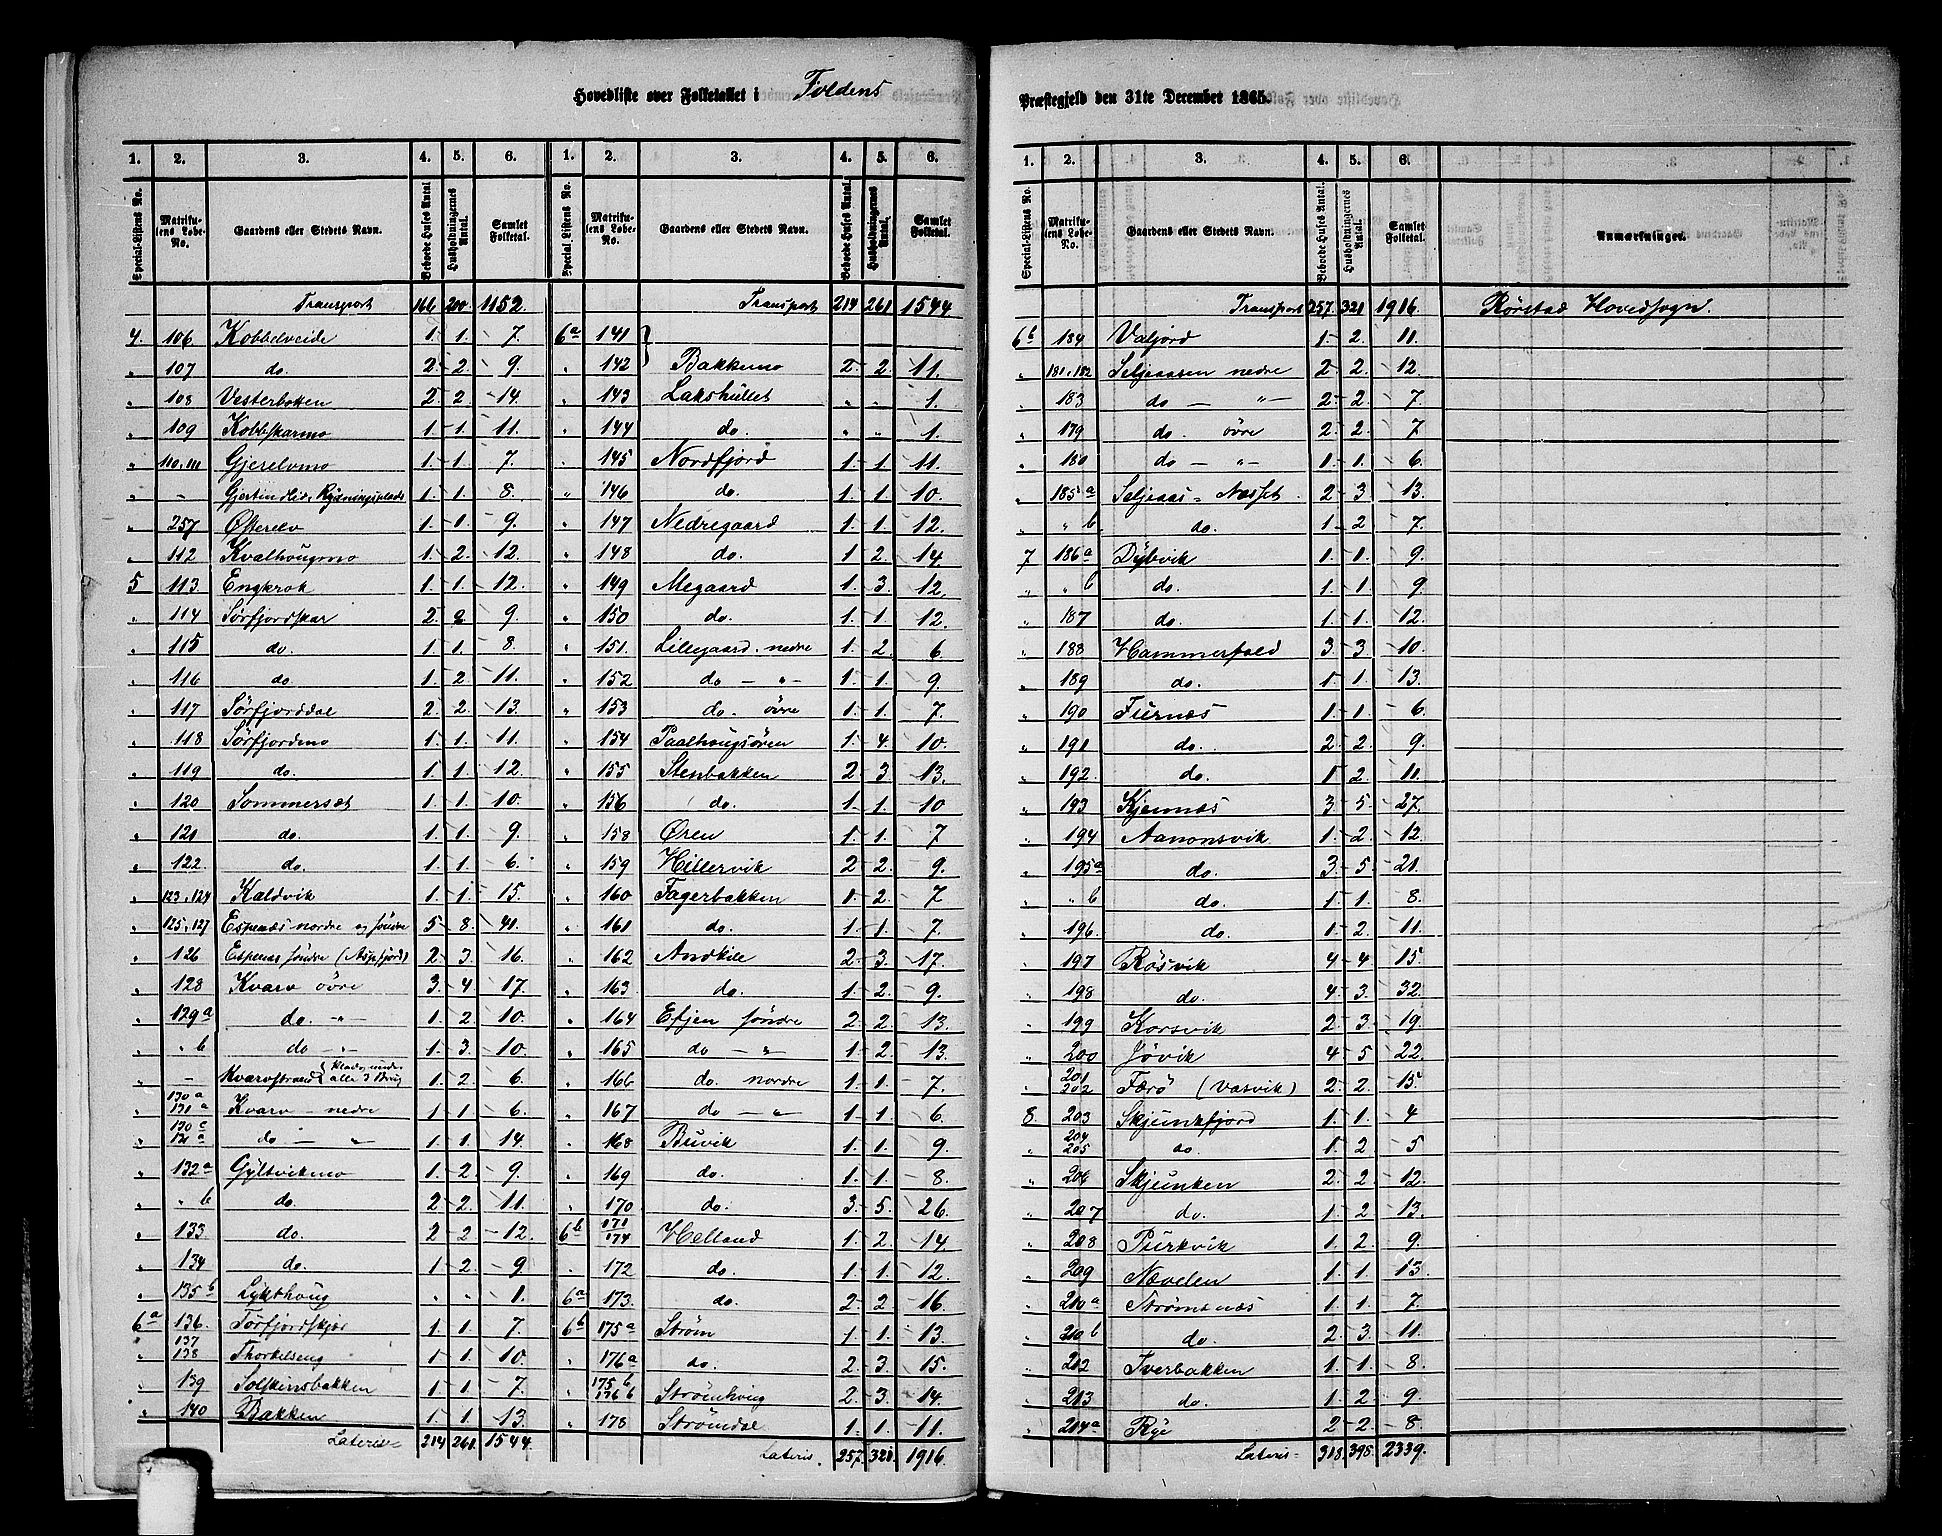 Hovedliste over Folketallet i Foldens
1. 2. 3. 4. 5. 6. 1. 2. 3. 4. 5. 6.
Special-Listens No. Matrikulens Løbe-No. Gaardens eller Stedets Navn. Beboede Huses Antal Husholdningernes Antal. Samlet Folketal. Special Listens No. Matrikulens Løbe-No. Gaardens eller Stedets Navn. Beboede Huses Antal. Husholdningernes Antal. Samlet Folketal.
Transport 166 200 1152. Transport 214 261 1544
4. 106. Kobbelveide 1. 1. 7. 6a 141
" 107 do. 2. 2. 9. " 142 Bakkemo 2. 2. 11.
" 108 Vesterbotten 2. 2. 14. " 143 Lakshullet " " 1.
" 109 Kobbskarmo 1. 1. 11. " 144 do. " " 1.
" 110.111 Gjerelvmo 1. 1. 7. " 145 Nordfjord 1. 1. 11.
" - Gjertindlid, Rydningsplads 1. 1. 8. " 146 do. 1. 1. 10.
" 257 Østerelv 1. 1. 9. " 147 Nedregaard 1. 1. 12.
" 112 Kvalhougmo 1. 2. 12. " 148 do. 1. 2. 14.
5 113. Engkrok 1. 1. 12. " 149 Megaard 1. 3. 12.
" 114 Sørfjordskar 2. 2 9. " 150 do. 1. 1. 12.
" 115 do. 1. 1. 8. " 151. Lillegaard. nedre 1. 2. 6
" 116 do. 1. 2. 11. " 152 do — " — 1. 1. 9.
" 117 Sørfjorddal 2. 2. 13. " 153 do. övre 1. 1. 7.
" 118 Sørfjordmo 1. 1. 11. " 154 Paalhougsören 1. 4. 10.
" 119 do. 1. 1. 12. " 155 Stenbakken 2. 3. 13.
" 120 Sommerset 1. 1. 10. " 156 do. 1. 1. 10
" 121 do. 1. 1. 9. " 158 Øren 1. 1. 7
" 122 do. 1. 1. 6. " 159 Hillervik 2. 2. 9.
" 123.124 Kaldvik 1. 1. 15. " 160 Fagerbakken 1. 2. 7
" 125.127 Espenæs nordre og søndre 5 8. 41. " 161 do. 1. 1. 7.
" 126 Espenæs søndre (Aspfjord) 2. 3. 16. " 162 Andkile 2. 3. 17.
" 128 Kvarv övre 3. 4. 17. " 163 do. 1. 2. 9.
" 129a do. — " — 1. 2. 10. " 164 Efjen søndre 2. 2. 13.
" " b do — " — 1. 3. 10. " 165 do — " — 1. 2. 13.
" — Kvarvstrand alle 3 Brug 1. 2. 6 " 166 do. nordre 1. 1. 7.
" 130a 131a Kvarv — nedre 1. 1. 6. " 167 do — " — 1. 1. 6.
" do — " — 1. 1. 14. " 168 Buvik 1. 1. 9.
" 132a Gyltvikmo 1. 2. 9. " 169 do. 1. 1. 8.
" " b do. 2. 2. 11. " 170 do. 3. 5. 26.
" 133 do. 2. 2 12. 6b 171/174 Helland 1. 2. 14.
" 134 do. 1. 2. 9 " 172 do. 1. 1. 12.
" 135b Lykthoug " " 1. 6a 173. do. 2. 2 16.
6a 136. Tørfjordskjær 1. 1. 7. 6b 175a Strøm 1. 1. 13.
" 137 138 Thorkelseng 1. 1. 10. " 176a do. 2. 3. 15.
" 139 Solskinsbakken 1. 1. 7. " 175b 176b Strømhoug 2. 3. 14.
" 140 Bakken 1. 1. 13. " 178 Strømdal 1. 1. 11.
Lateris 214 261. 1544. Lateris. 257. 321. 1916.
Præstegjeld den 31te December 1865.
1. 2. 3. 4. 5. 6.
Special-Listens No. Matrikulens Løbe-No. Gaardens eller Stedets Navn. Beboede Huses Antal. Husholdningernes Antal. Samlet Folketal. Anmærkninger.
Transport 257. 321 1916. Rörstad Hovedsogn.
6b 184 Valjord 1. 2. 11.
" 181.182 Seljeaasen nedre 2. 2. 12.
" 183 do — " — 2. 2. 7
" 179 do. övre 2. 2. 7
" 180 do — " — 1. 1. 6.
" 185a Seljeaas = Næsset 2. 3. 13.
" " b do. 1. 2 7.
7 186a Dybvik 1. 1. 9.
" " b do. 1. 1. 9.
" 187 do. 1. 1. 12.
" 188 Hammerfald 3. 3. 10.
" 189 do. 1. 1. 13.
" 190 Furnæs 1. 1. 6.
" 191 do. 2. 2. 9.
" 192. do. 1. 2. 11.
" 193 Kjennæs 3. 5. 27.
" 194 Aanonsvik 1. 2. 12.
" 195a do. 3. 5. 21.
" " b do. 1. 1. 8.
" 196. do. 1. 2. 11.
" 197 Røsvik 4. 4. 15.
" 198 do. 4. 3. 32.
" 199 Korsvik 2. 3. 19.
" 200 Jövik 4. 5. 22.
" 201 202 Færö (Vasvik) 2. 2. 15.
8. 203 Skjunkfjord 1. 1. 4
" 204 205 do. 1. 2. 5
" 206 Skjunken 2. 2. 12.
" 207 do. 1. 2 13.
" 208 Purkvik 1. 2. 9.
" 209 Nævelen 1. 1. 13.
" 210a Strømsnæs 1. 1. 7.
" 210b do. 2. 3. 11.
" 212 Iverbakken 1. 1. 8.
" 213 do. 1. 2. 9.
" 214a Rye 2. 2. 8
Lateris 318. 398. 2339.